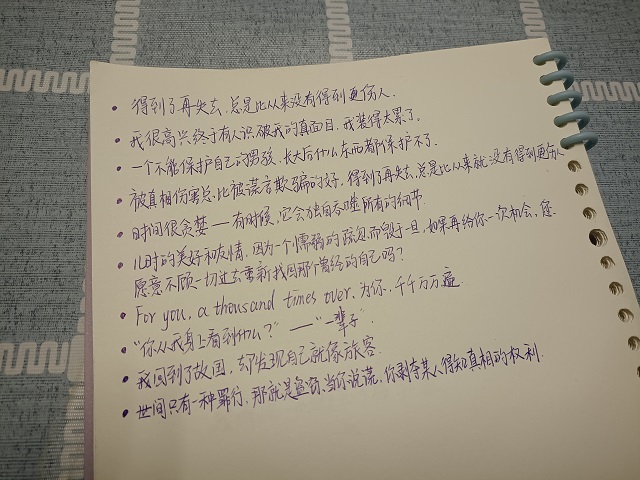 • 得到了再失去，总是比从来没有得到更伤人．
• 我很高兴终于有人识破我的真面目，我装得太累了．
• 一个不能保护自己的男孩，长大后什么东西都保护不了．
• 被真相伤害总比被谎言欺骗的好，得到了再失去，总是比从来就没有得到更伤人
• 时间很贪婪——有时候，它会独自吞噬所有的细节．
• 儿时的美好和友情，因为一个懦弱的疏忽而毁于一旦，如果再给你一次机会，您
愿意不顾一切过去重新找回那个曾经的自己吗？
• For you, a thousand times over. 为你，千千万万遍
• “你从我身上看到什么？” —— “一辈子”
• 我回到了故国，却发现自己就像旅客．
• 世间只有一种罪行，那就是盗窃，当你说谎，你剥夺某人得知真相的权利．